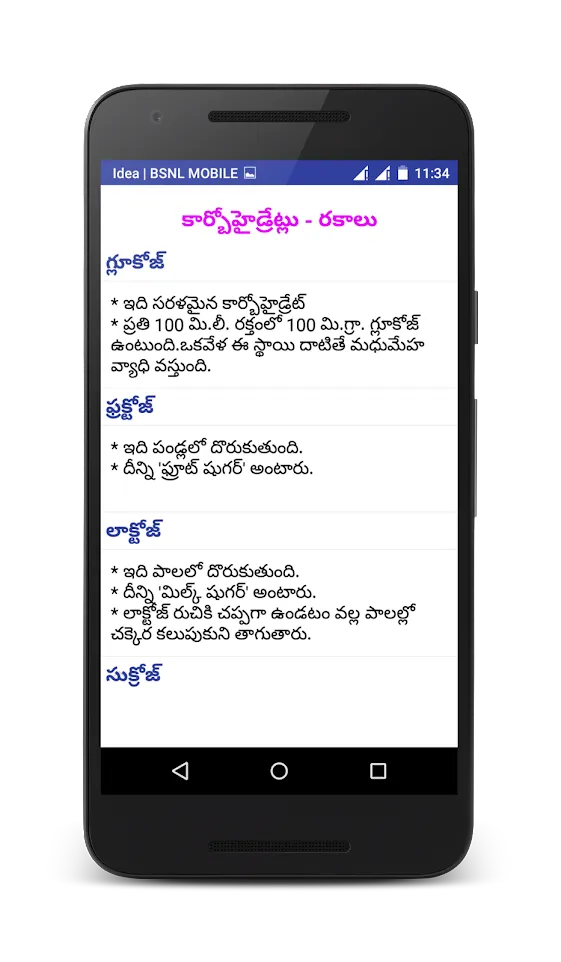 Idea | BSNL MOBILE 11:34
కార్బోహైడ్రేట్లు - రకాలు
గ్లూకోజ్
* ఇది సరళమైన కార్బోహైడ్రేట్
* ప్రతి 100 మి.లీ. రక్తంలో 100 మి.గ్రా. గ్లూకోజ్
ఉంటుంది.ఒకవేళ ఈ స్థాయి దాటితే మధుమేహ
వ్యాధి వస్తుంది.
ఫ్రక్టోజ్
* ఇది పండ్లలో దొరుకుతుంది.
* దీన్ని 'ఫ్రూట్ షుగర్' అంటారు.
లాక్టోజ్
* ఇది పాలలో దొరుకుతుంది.
* దీన్ని 'మిల్క్ షుగర్' అంటారు.
* లాక్టోజ్ రుచికి చప్పగా ఉండటం వల్ల పాలల్లో
చక్కెర కలుపుకుని తాగుతారు.
సుక్రోజ్